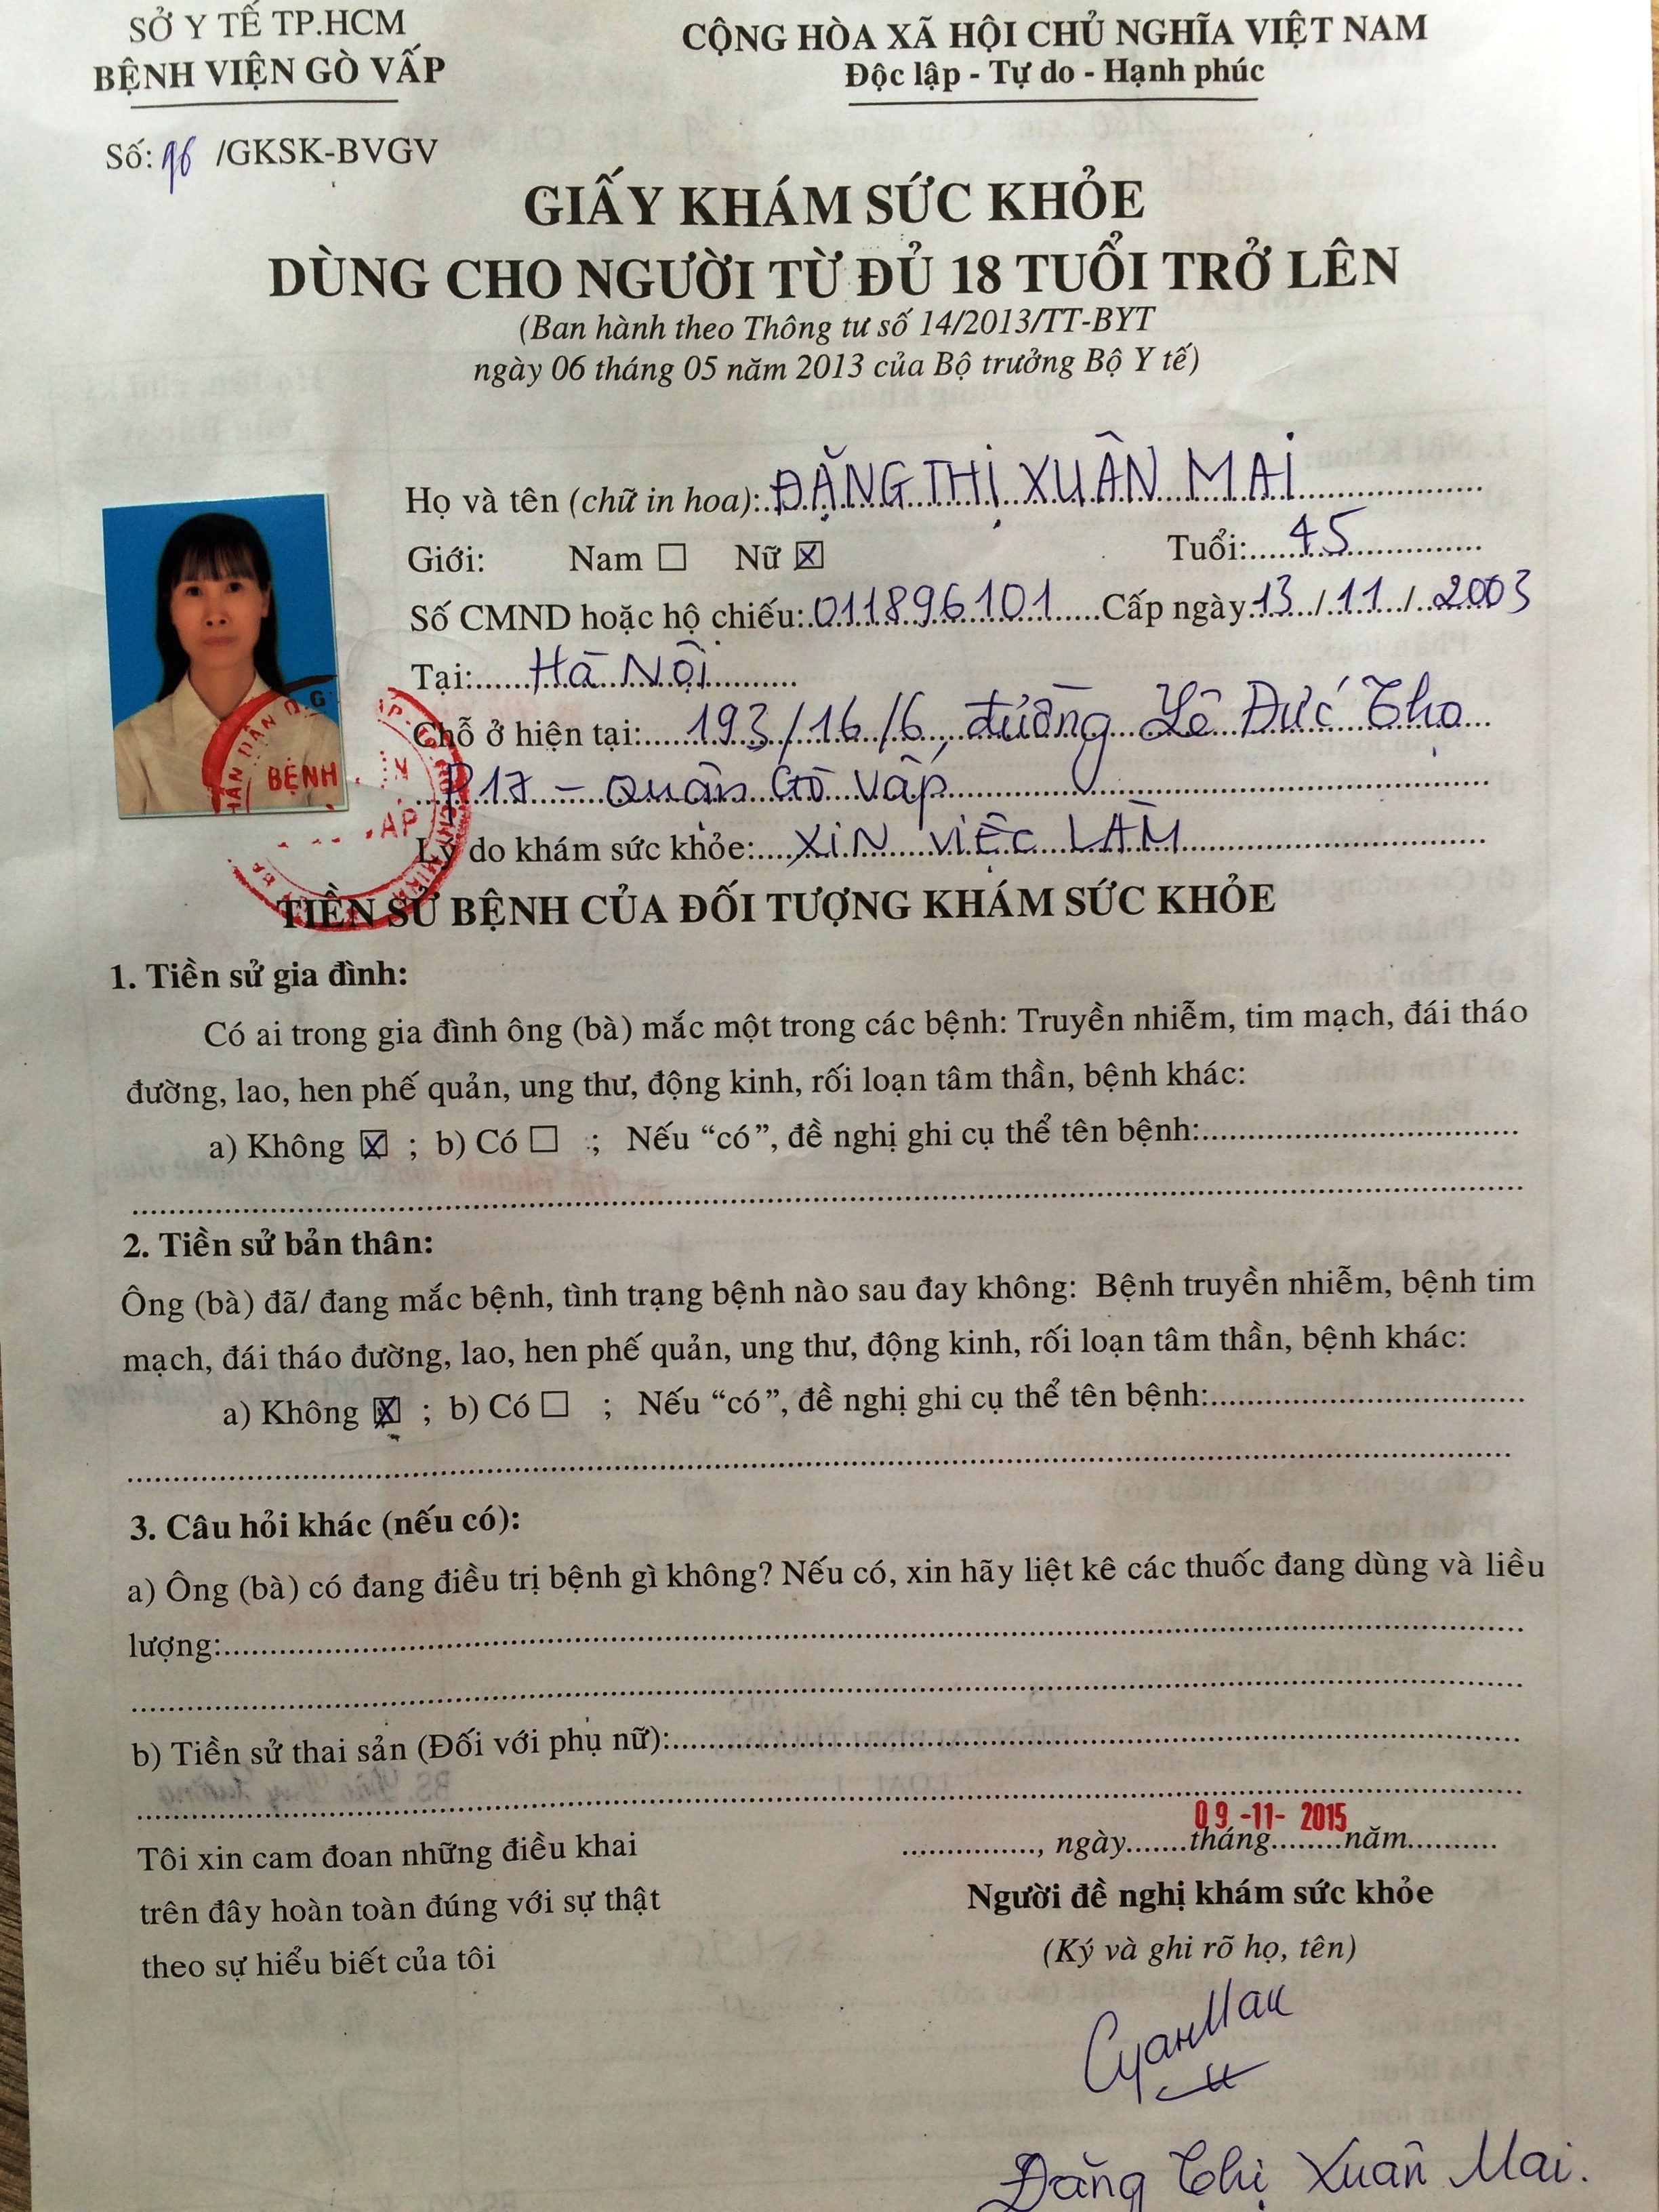 SỞ Y TẾ TP.HCM
BỆNH VIỆN GÒ VẤP
Số: /GKSK-BVGV
CỘNG HÒA XÃ HỘI CHỦ NGHĨA VIỆT NAM
Độc lập - Tự do - Hạnh phúc
GIẤY KHÁM SỨC KHỎE
DÙNG CHO NGƯỜI TỪ ĐỦ 18 TUỔI TRỞ LÊN
(Ban hành theo Thông tư số 14/2013/TT-BYT
ngày 06 tháng 05 năm 2013 của Bộ trưởng Bộ Y tế)
Họ và tên (chữ in hoa): ĐẶNG THỊ XUÂN MAI
Giới: Nam ☐ Nữ ☒ Tuổi: 45
Số CMND hoặc hộ chiếu: 011896101 Cấp ngày 13/11/2003
Tại: Hà Nội
Chỗ ở hiện tại: 193/16/6, đường Lê Đức Thọ
P17 - Quận Gò Vấp
Lý do khám sức khỏe: XIN VIỆC LÀM
BỆNH
TIỀN SỬ BỆNH CỦA ĐỐI TƯỢNG KHÁM SỨC KHỎE
1. Tiền sử gia đình:
Có ai trong gia đình ông (bà) mắc một trong các bệnh: Truyền nhiễm, tim mạch, đái tháo
đường, lao, hen phế quản, ung thư, động kinh, rối loạn tâm thần, bệnh khác:
a) Không ☒ ; b) Có ☐ ; Nếu “có”, đề nghị ghi cụ thể tên bệnh:
2. Tiền sử bản thân:
Ông (bà) đã/ đang mắc bệnh, tình trạng bệnh nào sau đay không: Bệnh truyền nhiễm, bệnh tim
mạch, đái tháo đường, lao, hen phế quản, ung thư, động kinh, rối loạn tâm thần, bệnh khác:
a) Không ☒ ; b) Có ☐ ; Nếu “có”, đề nghị ghi cụ thể tên bệnh:
3. Câu hỏi khác (nếu có):
a) Ông (bà) có đang điều trị bệnh gì không? Nếu có, xin hãy liệt kê các thuốc đang dùng và liều
lượng:
b) Tiền sử thai sản (Đối với phụ nữ):
Tôi xin cam đoan những điều khai
trên đây hoàn toàn đúng với sự thật
theo sự hiểu biết của tôi
09-11-2015
, ngày tháng năm
Người đề nghị khám sức khỏe
(Ký và ghi rõ họ, tên)
Đặng Thị Xuân Mai.